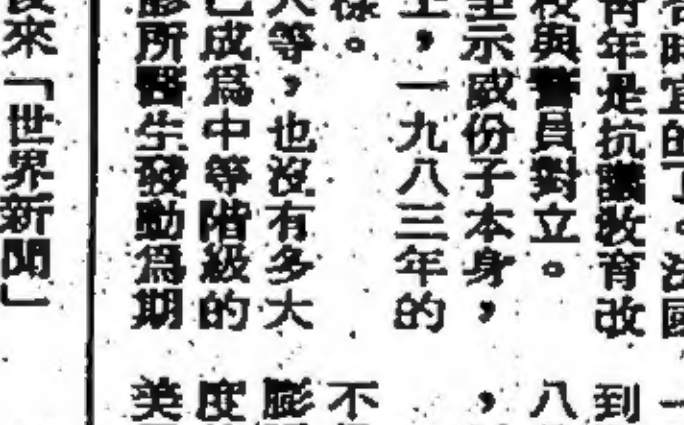 時宜的了。法國
青年是抗議教育改
校與警員對立。
示威份子本身，
上，一九八三年的
樣。
人等，也沒有多大
已成爲中等階級的
診所醫生發動爲期
來「世界新聞」
一
到
八
，
不
膨
度
美